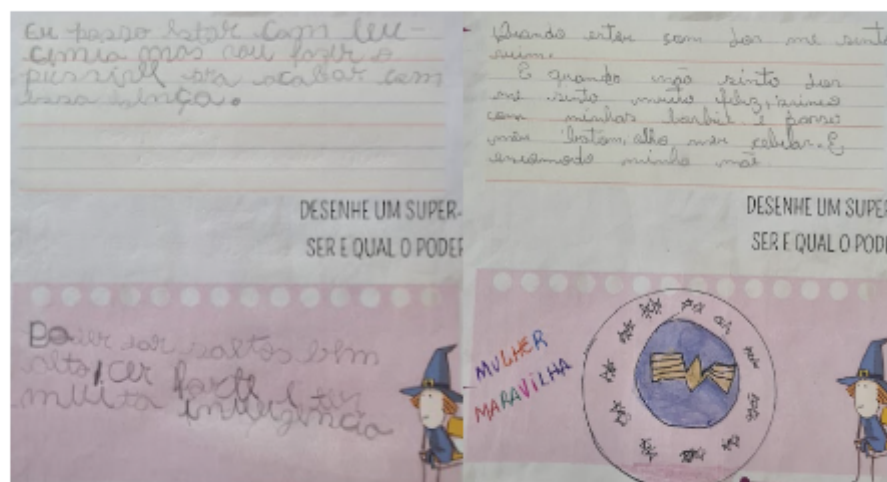 Eu posso estar com leu-
cimia mas vou fazer o
pussivel ora acabar com
essa duença.
DESENHE UM SUPER-
SER E QUAL O PODER
Poder dar saltos bem
alto, cer forte e ter
muita inteligencia
Quando estou com dor me sinto
ruim.
E quando não sinto dor
me sinto muito feliz, brinco
com minhas barbie e passo
meu batom, olho meu celular. E
encomodo minha mãe
DESENHE UM SUPE
SER E QUAL O POD
MULHER
MARAVILHA